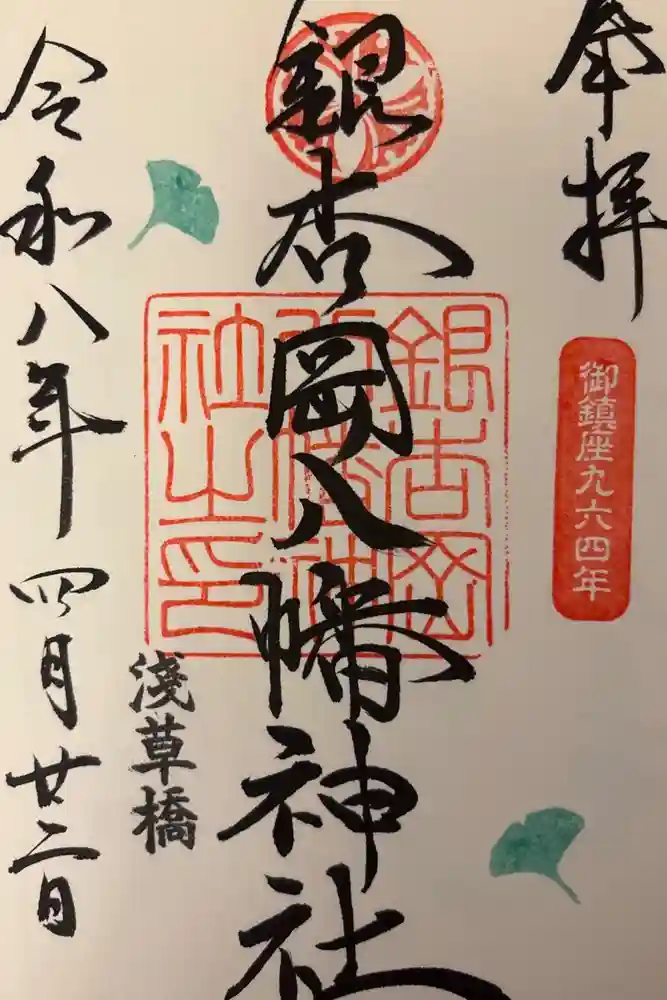 奉拝
御鎮座九六四年
銀杏岡八幡神社
銀杏岡八幡神社之印
淺草橋
令和八年四月廿二日